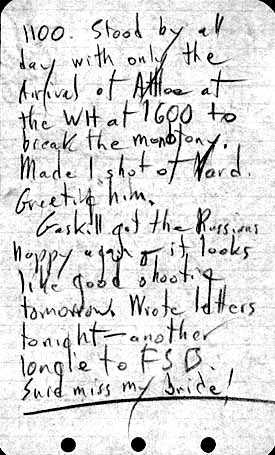 1100. Stood by all
day with only the
Arrival of Attlee at
the WH at 1600 to
break the monotony.
Made 1 shot of Vard.
Greeting him.
Gaskill got the Russians
happy again & it looks
like good shooting
tomorrow. Wrote letters
tonight—another
longie to FSB.
Surd miss my bride!